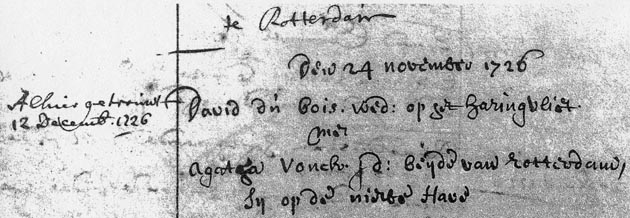 te Rotterdam
Den 24 november 1726
Alhier getrouwt
12 Decemb. 1726
David dú bois. wed: op het haringvliet
met
Agatha Vonck Jd: beijde van Rotterdam,
sij op de nieuwe Have